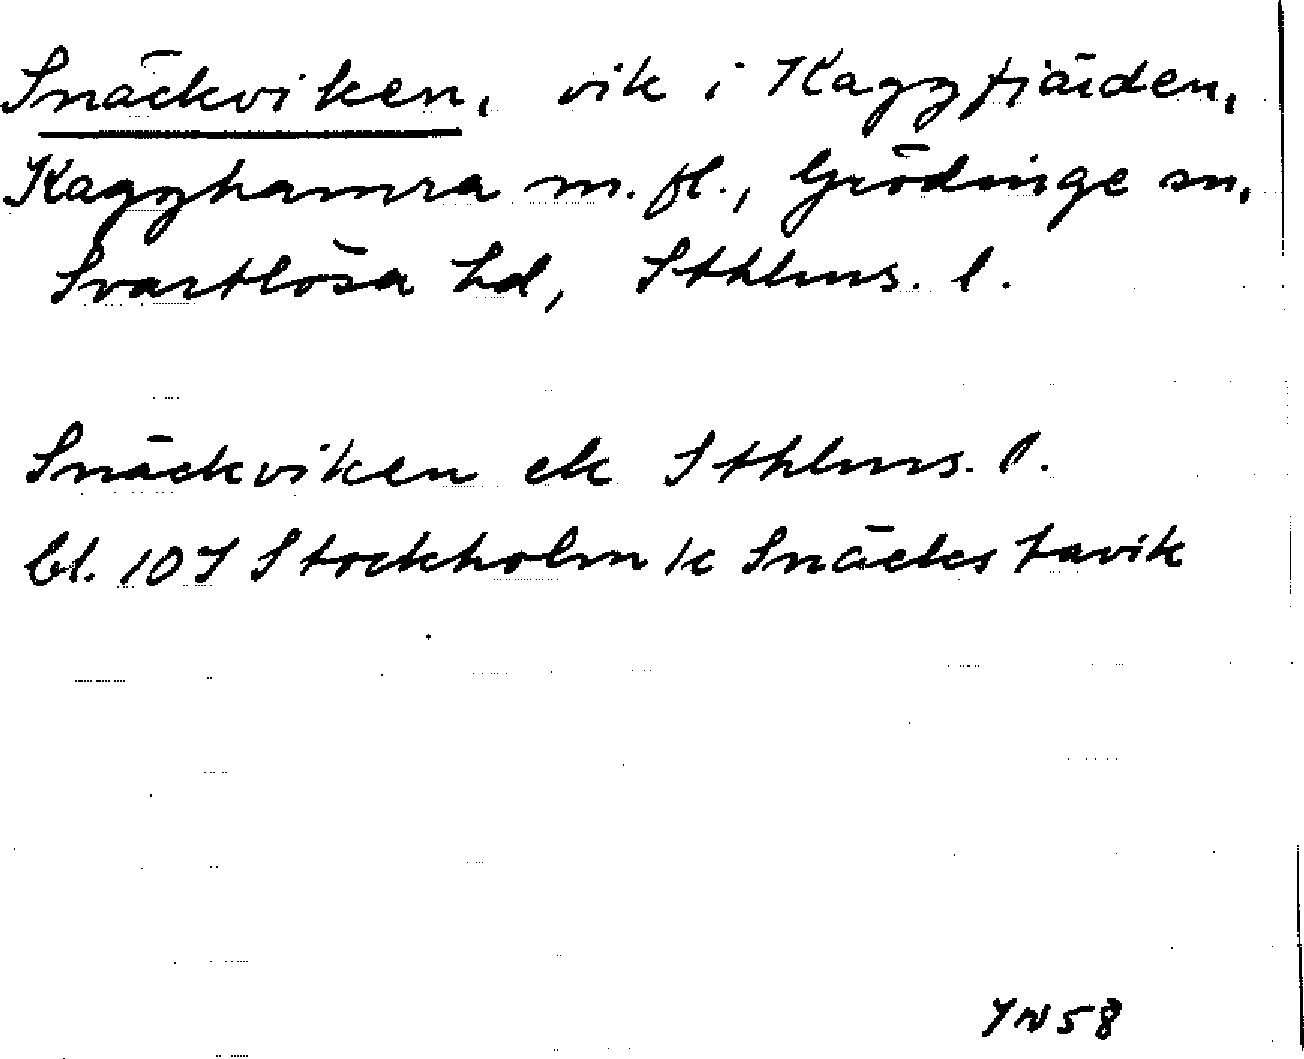 Snäckviken, vik i Kaggfjärden,
Kagghamra m. fl., Grödinge sn,
Svartlösa hd, Sthlms. l.
Snäckviken ek Sthlms. l.
bl. 10I Stockholm k Snäckstavik
YN58